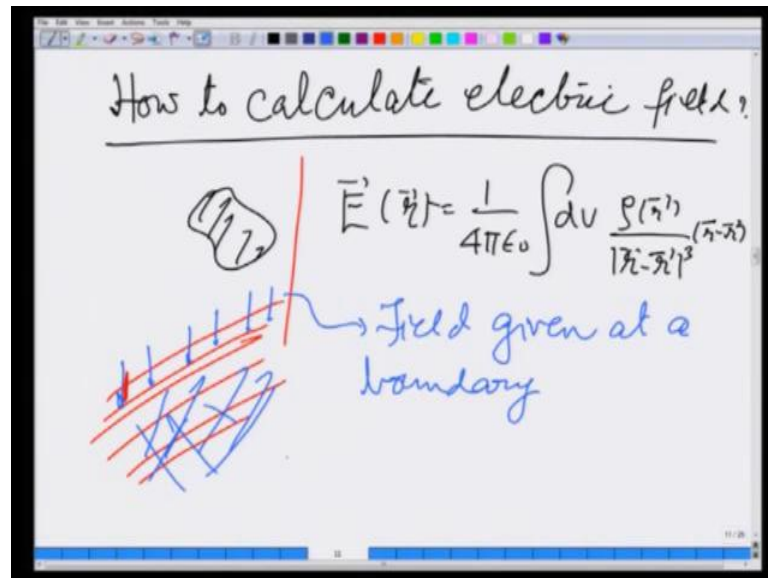 File Edit View Insert Actions Tools Help
How to calculate electric field?
E⃗(r⃗) = 1/4πϵ₀ ∫dv ρ(r⃗')/|r⃗-r⃗'|³ (r⃗-r⃗')
→ Field given at a
boundary
11
11 / 26